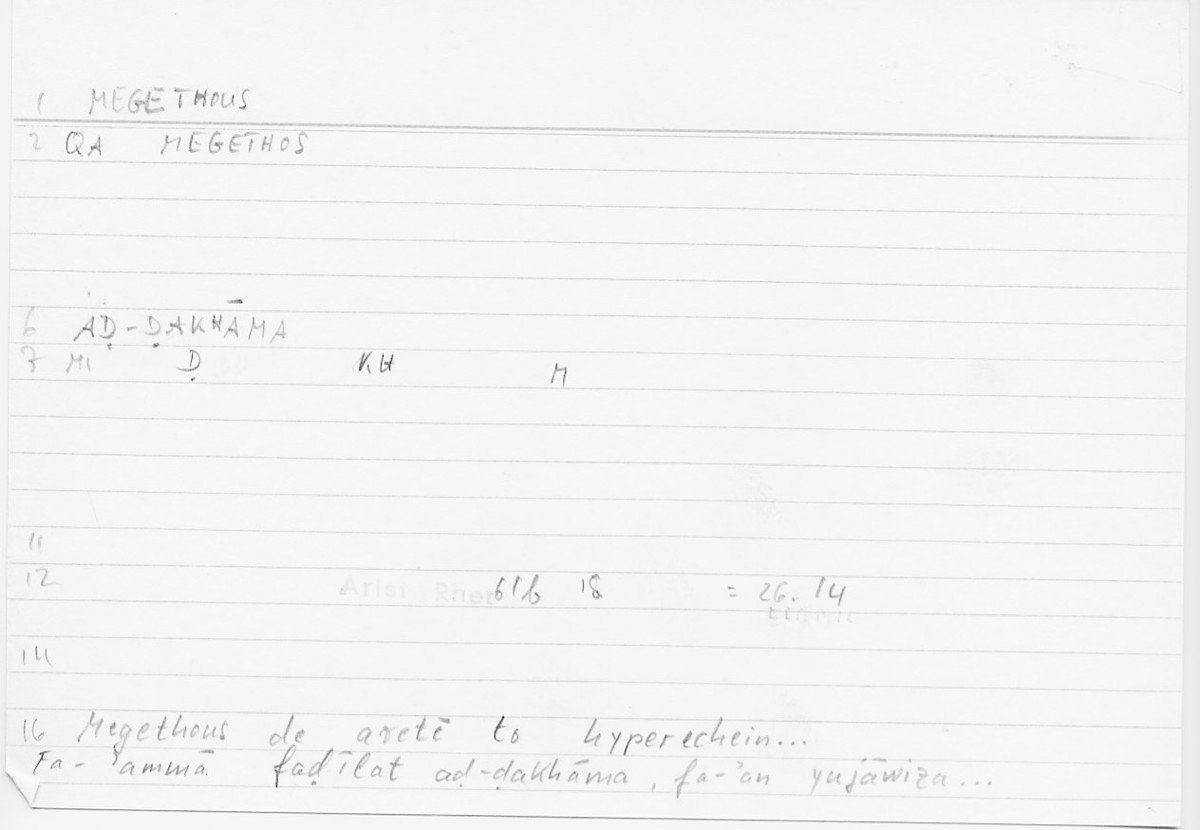 1 MEGETHOUS
2 QA MEGETHOS
6 AḌ-ḌAKHĀMA
7 MI Ḍ KH M
11
12 Arist Rhet 61b 18 = 26.14
14
16 Megethous de aretē to hyperechein...
Fa-'ammā faḍīlat aḍ-ḍakhāma, fa-'an yujāwiza...